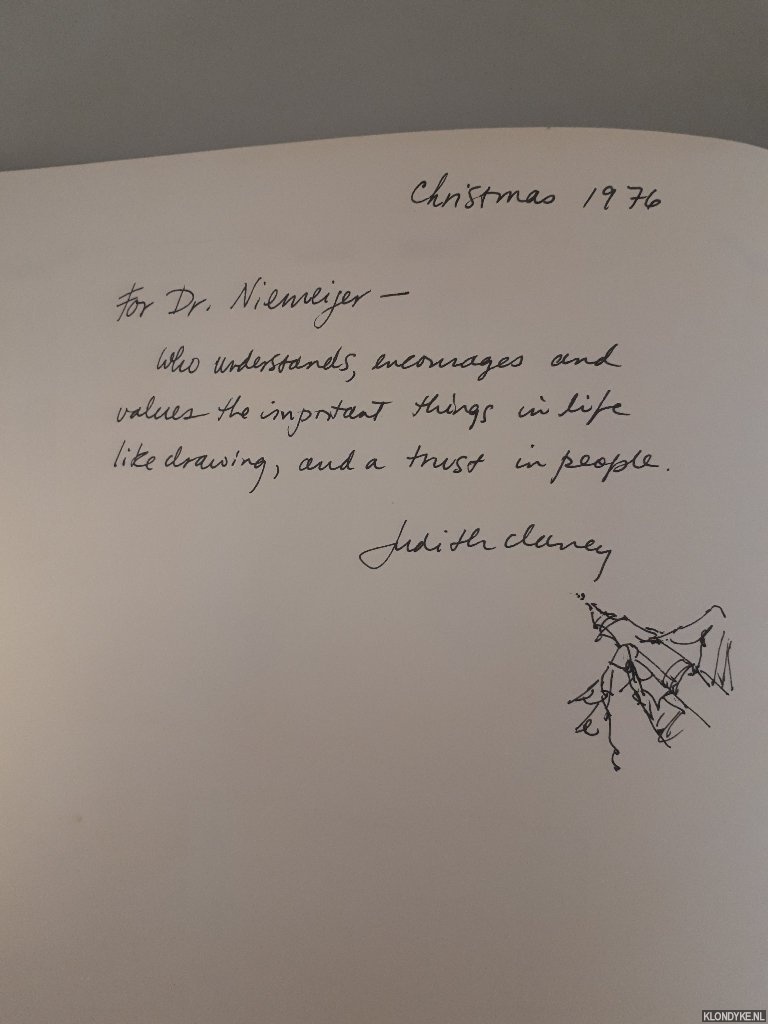 Christmas 1976
For Dr. Niemeijer —
who understands, encourages and
values the important things in life
like drawing, and a trust in people.
Judith Clancy
KLONDYKE.NL